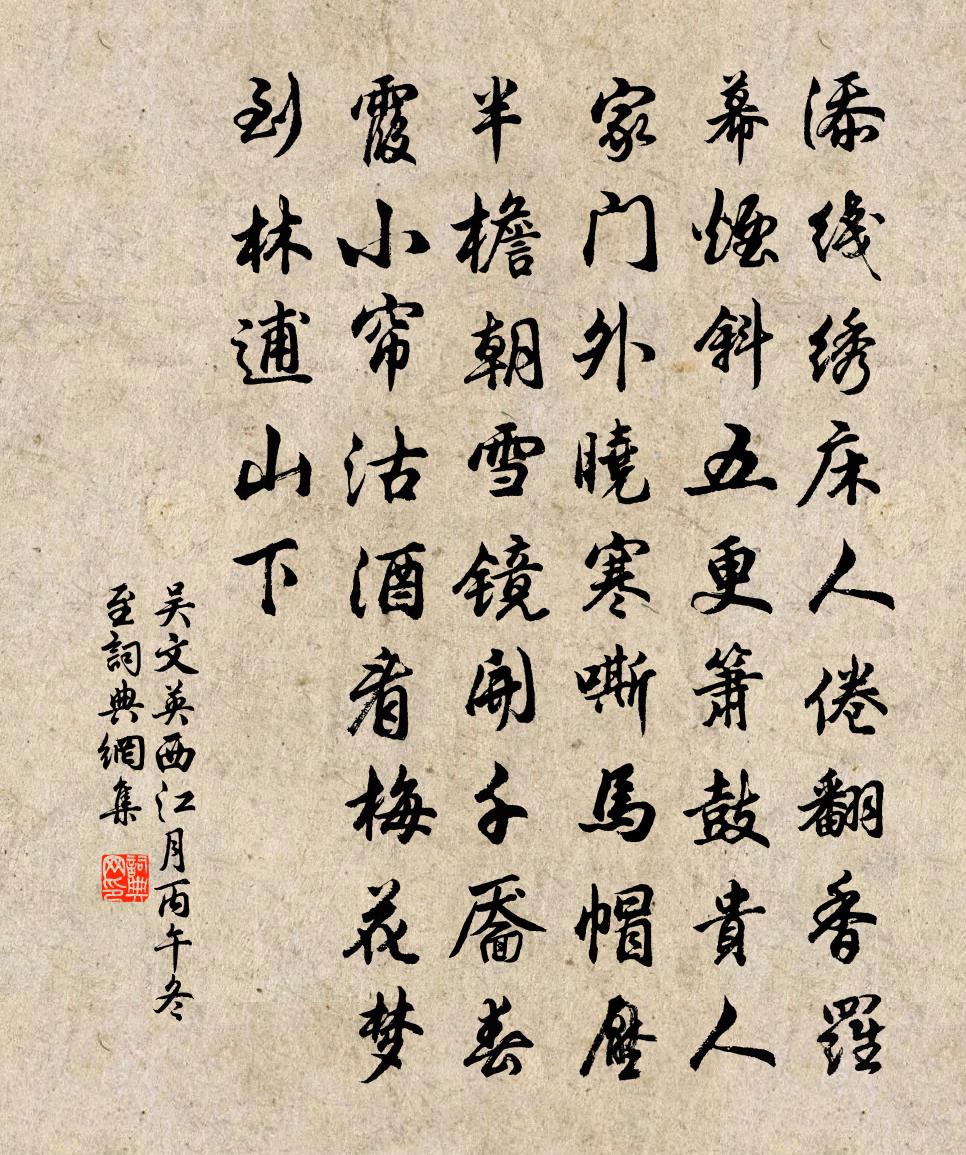 添线绣床人倦翻香羅
幕煙斜五更箫鼓貴人
家门外曉寒嘶馬帽壓
半檐朝雪镜開千靥春
霞小帘沽酒看梅花梦
到林逋山下
吴文英西江月丙午冬
至詞典網集
詞典网印